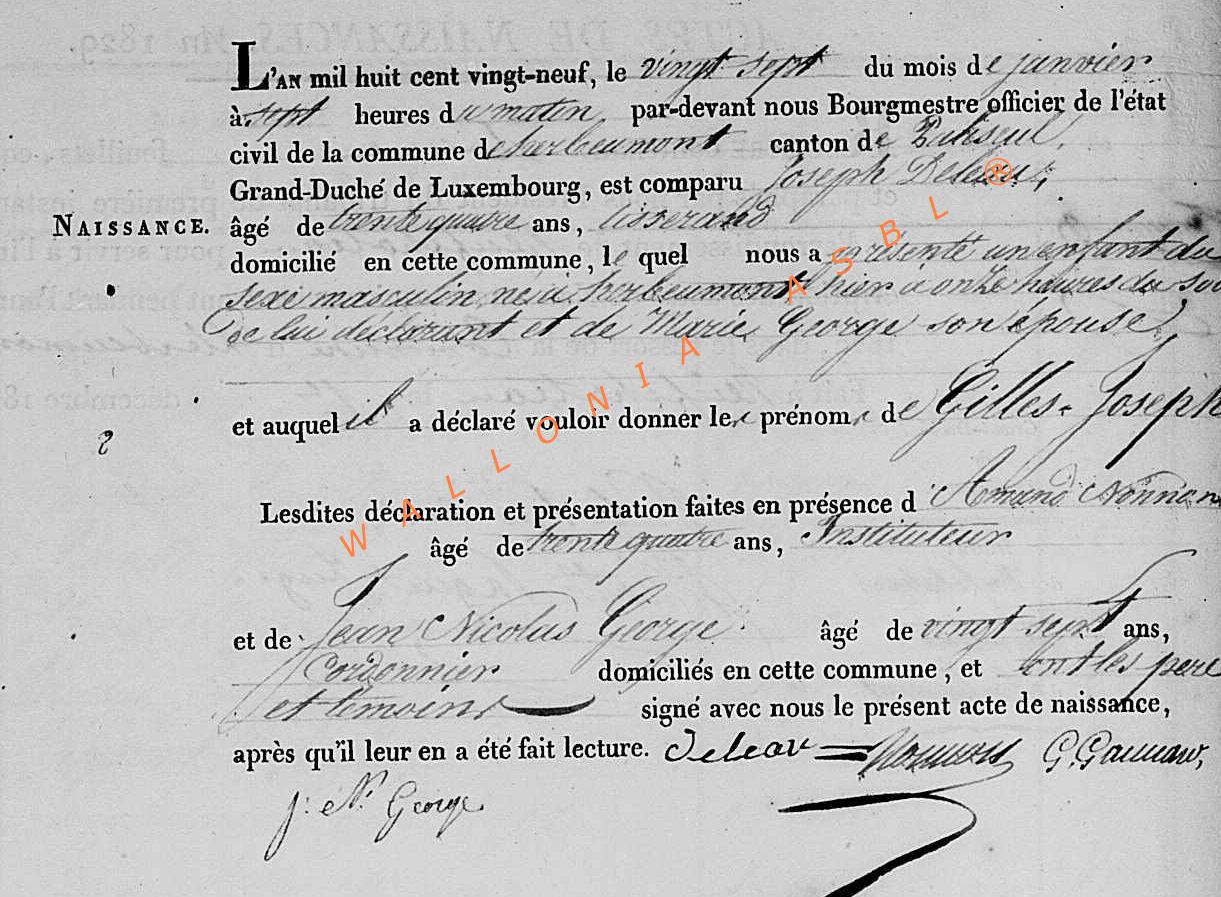 L'AN mil huit cent vingt-neuf, le vingt sept du mois de janvier
à sept heures du matin, par-devant nous Bourgmestre officier de l'état
civil de la commune d'herbeumont canton de
Grand-Duché de Luxembourg, est comparu Joseph Deleau,
NAISSANCE. âgé de trente quatre ans, tisserand
domicilié en cette commune, le quel nous a présenté un enfant du
sexe masculin, né à herbeumont hier à onze heures du soir
de lui déclarant et de Marie George son épouse,
et auquel il a déclaré vouloir donner les prénoms de Gilles-Joseph
2
Lesdites déclaration et présentation faites en présence d'Amand
âgé de trente quatre ans, Instituteur
et de Jean Nicolas George âgé de vingt sept ans,
Cordonnier domiciliés en cette commune, et ont les père
et témoins signé avec nous le présent acte de naissance,
après qu'il leur en a été fait lecture. Deleau
j. N. George
WALLONIA ASBL ®